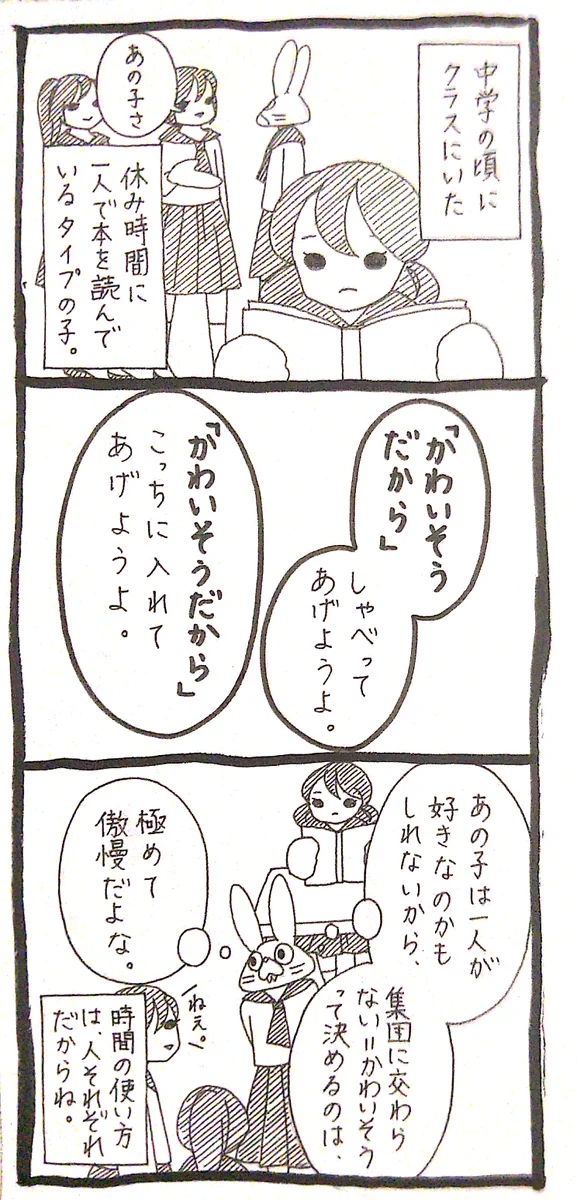 中学の頃に
クラスにいた
あの子さ
休み時間に
一人で本を読んで
いるタイプの子。
「かわいそう
だから」
しゃべって
あげようよ。
「かわいそうだから」
こっちに入れて
あげようよ。
あの子は一人が
好きなのかも
しれないから、
集団に交わら
ない=かわいそう
って決めるのは、
極めて
傲慢だよな。
ねぇ。
時間の使い方
は、人それぞれ
だからね。